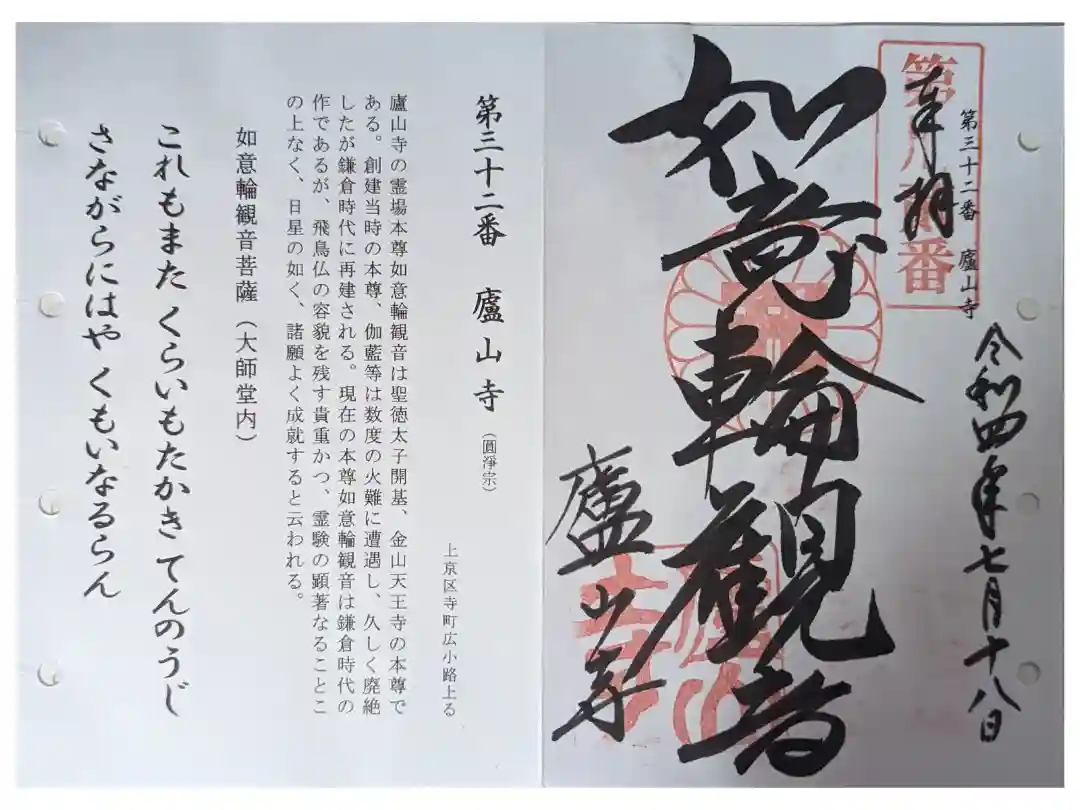 奉拝
第三十二番 廬山寺
令和四年七月十八日
如意輪観音
廬山寺
第三十二番 廬山寺 （圓淨宗）
上京区寺町広小路上る
廬山寺の霊場本尊如意輪観音は聖徳太子開基、金山天王寺の本尊で
ある。創建当時の本尊、伽藍等は数度の火難に遭遇し、久しく廃絶
したが鎌倉時代に再建される。現在の本尊如意輪観音は鎌倉時代の
作であるが、飛鳥仏の容貌を残す貴重かつ、霊験の顕著なることこ
の上なく、日星の如く、諸願よく成就すると云われる。
如意輪観音菩薩（大師堂内）
これもまた くらいもたかき てんのうじ
さながらにはや くもいなるらん